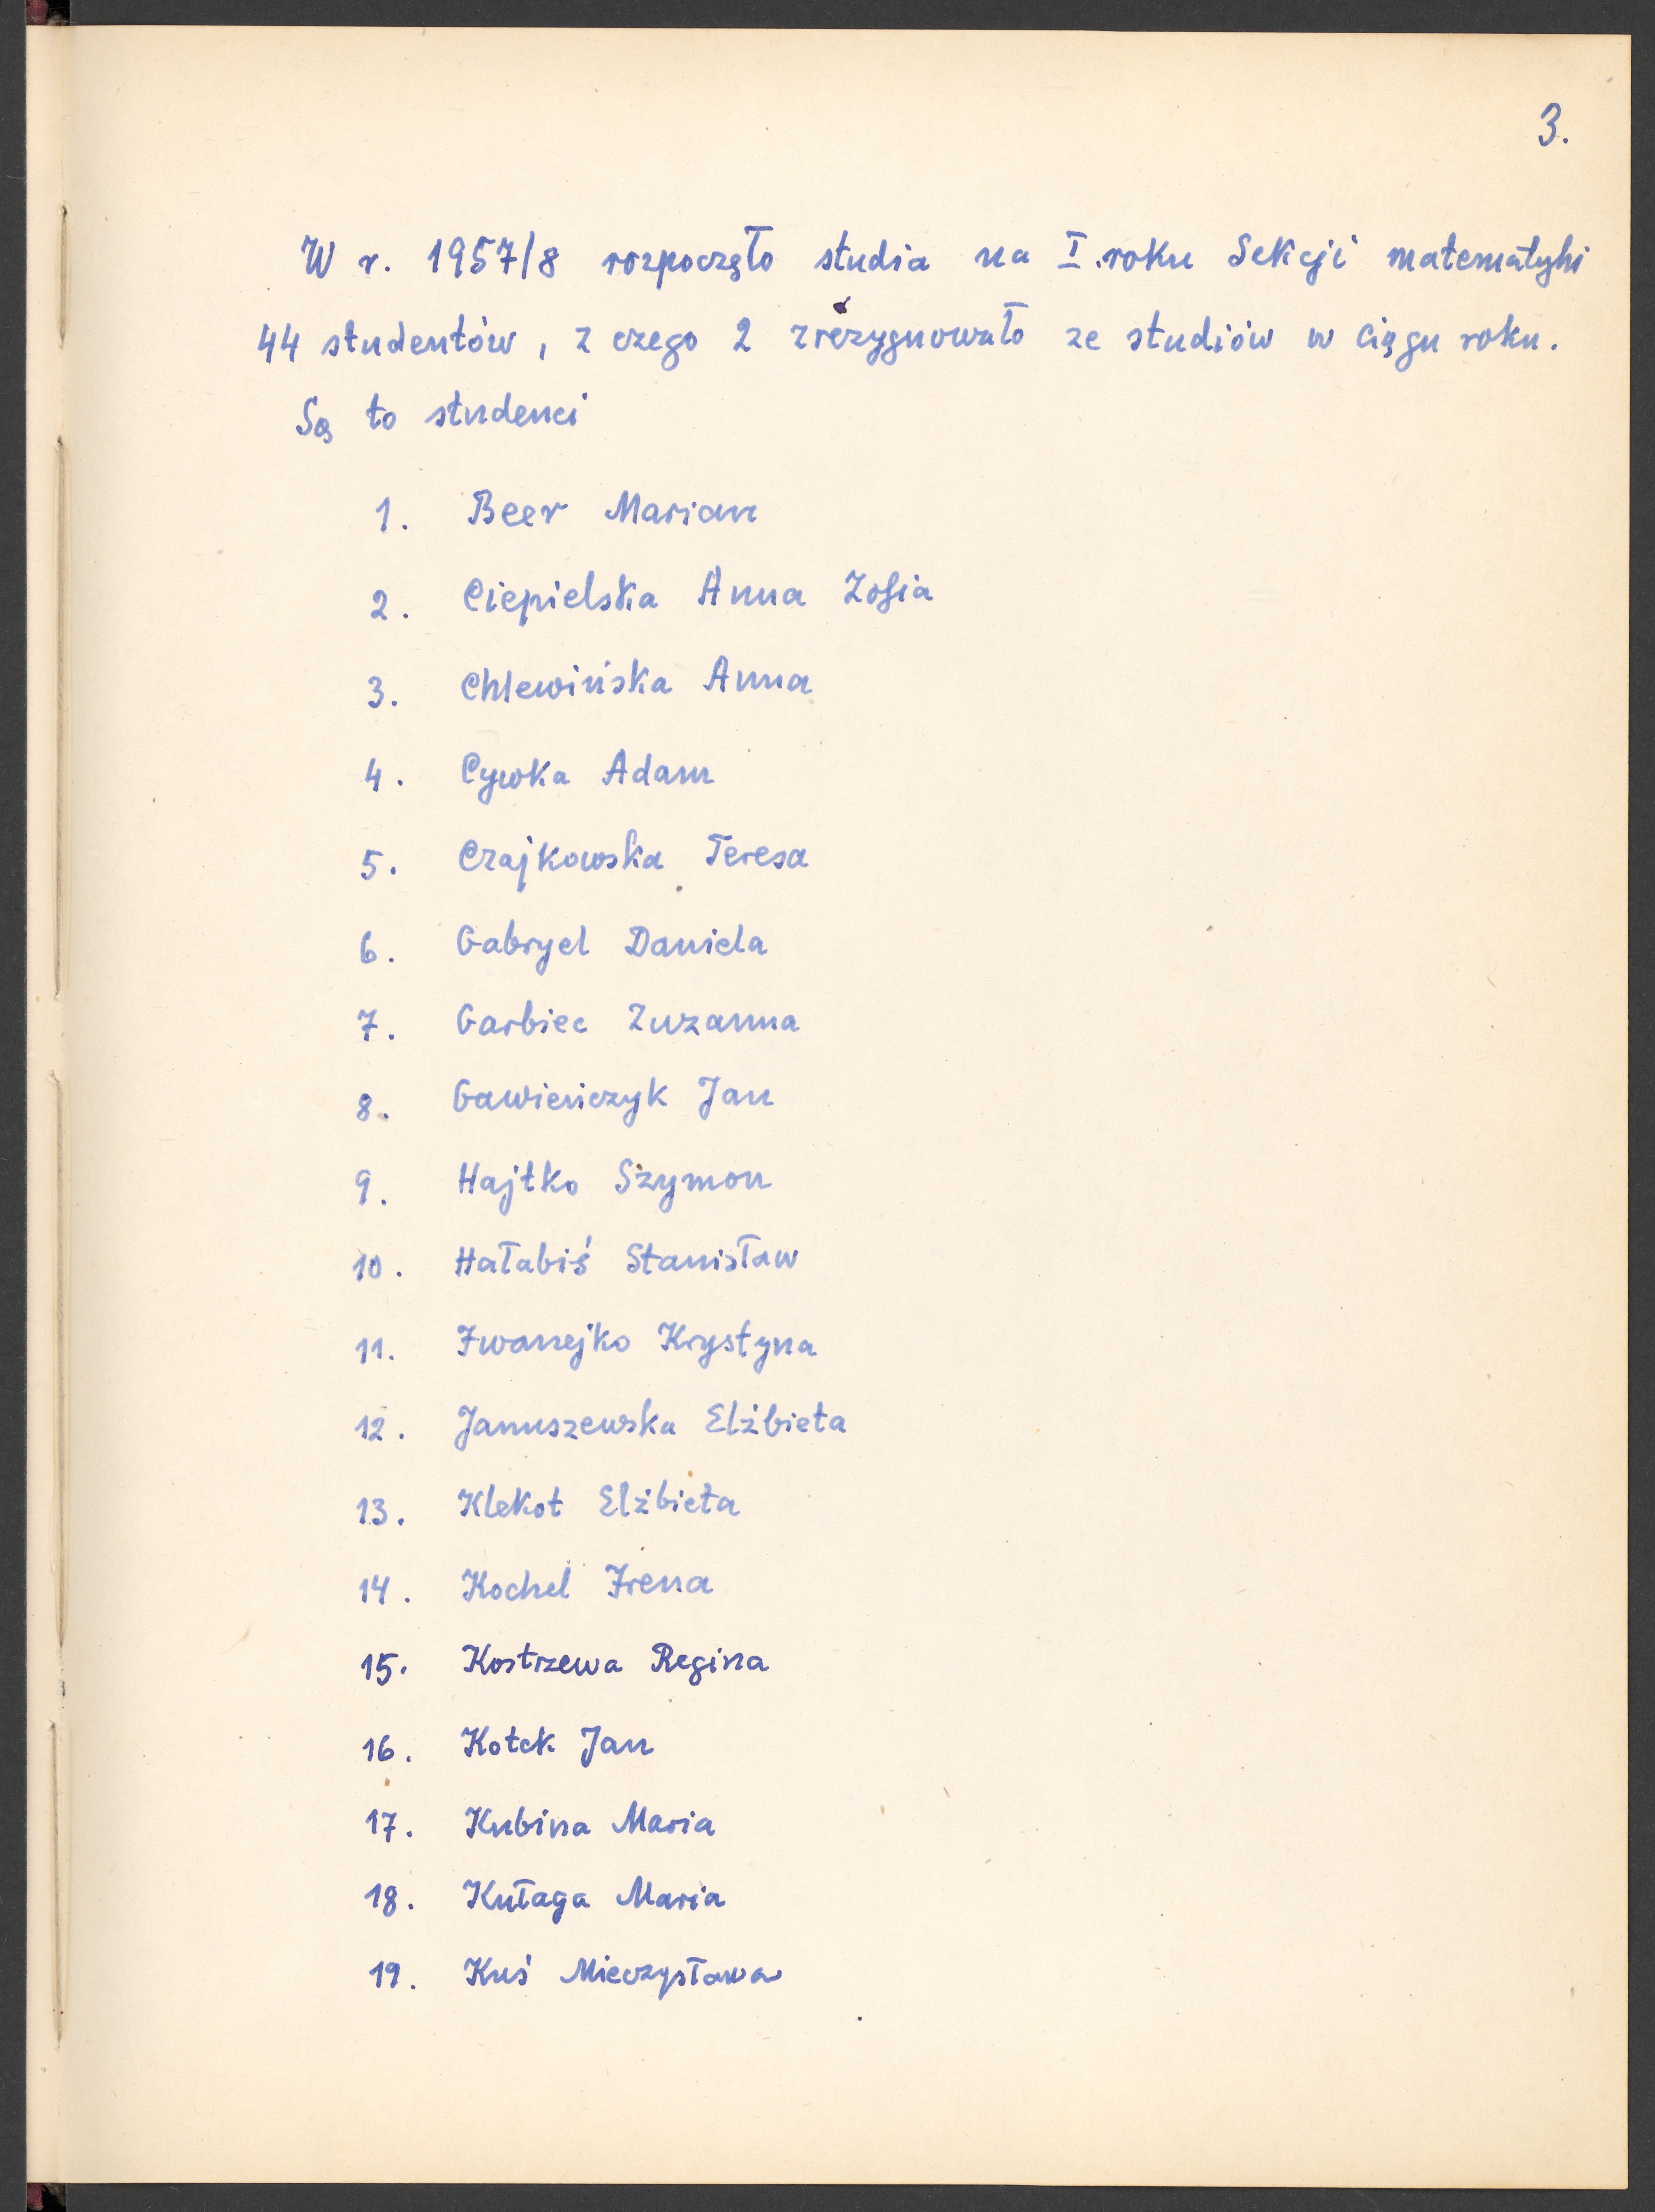 3.
W r. 1957/8 rozpoczęło studia na I. roku Sekcji matematyki
44 studentów, z czego 2 zrezygnowało ze studiów w ciągu roku.
Są to studenci
1. Beer Marian
2. Ciepielska Anna Zofia
3. Chlewińska Anna
4. Cywka Adam
5. Czajkowska Teresa
6. Gabryel Daniela
7. Garbiec Zuzanna
8. Gawieńczyk Jan
9. Hajtko Szymon
10. Hałabiś Stanisław
11. Iwanejko Krystyna
12. Januszewska Elżbieta
13. Klekot Elżbieta
14. Kochel Irena
15. Kostrzewa Regina
16. Kotek Jan
17. Kubina Maria
18. Kułaga Maria
19. Kuś Mieczysława